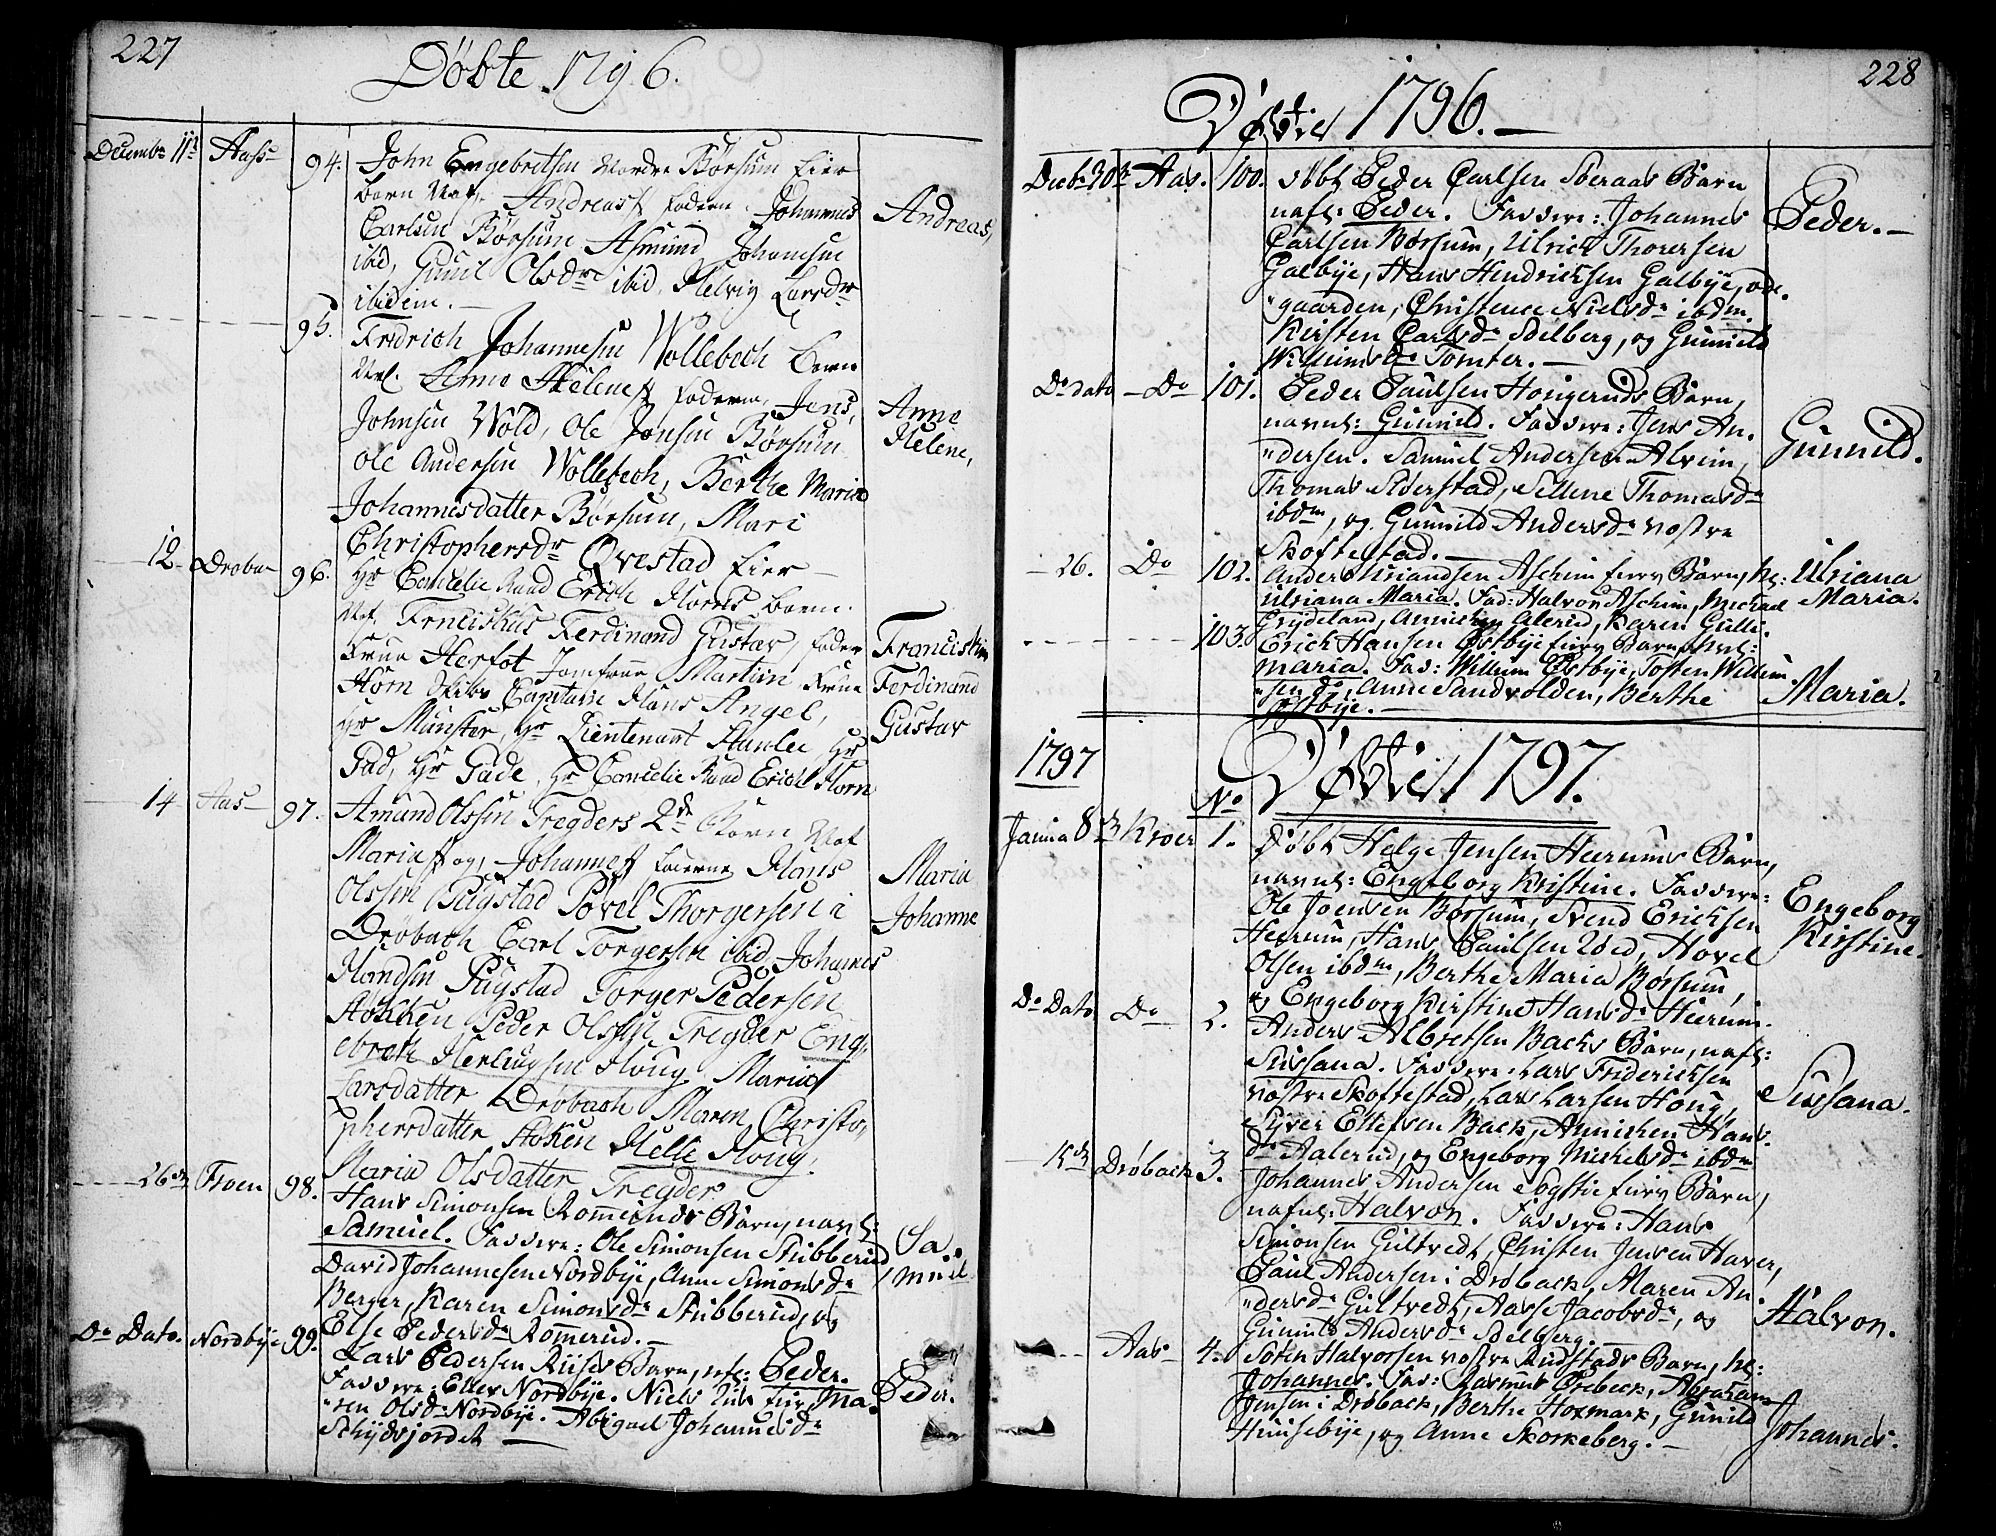 227
Döbte 1796.
Decembr 11te Aass 94.
John Engebretsen Nordre Börsum Eier
barn Naf. Andreas, fadderne Johannes
Carlsen Börsum Asmund Johansen
ibid, Gunil Olsdr ibid, Helvig Larsdr
ibidem.
Andreas,
95.
Fredrich Johannesen Wollebech barn
Naf. Anne Helene fadderne, Jens
Johnsen Wold, Ole Jensen Börsum
Ole Andersen Wollebech, Berthe Maria
Johannesdatter Börsum, Mari
Christophersdr Ovestad Eier
Anne
Helene,
12 Dröba 96.
Hr Cancelie Raad Erich Horns barn
Naf. Frnciskus Ferdinand Gustav, fadder
Frue Herfot Jomfrue Martini Frue
Horn Skibs Capitain Hans Angel,
Hr Münster, Hr Lieutenant Stanlee Hr
Gad, Hr Gade, Hr Cancelie Raad Erich Horn
Franciskus
Ferdinand
Gustav
14 Aas 97.
Amund Olssen Tregders 2de Börn Naf
Maria og Johanne fadderne Hans
Olssen Pugstad Povel Thorgersen i
Dröbach Carl Torgersen ibid Johannes
Handsen Pugstad Torger Pedersen
Stokken Peder Olssen Tregder Eng
ebreth Herlugsen Houg Maria
Larsdatter Dröbach Maren Christo
phersdatter Stoken Helle Houg.
Maria Olsdatter Tregder
Maria
Johanne
26de Froen 98.
Hans Simonsen Rommeruds Barn, navnl:
Samuel. Faddere: Ole Simonsen Stubberud
David Johannesen Nordbÿe, Anne Simonsdr
Berger, Karen Simonsdr Stubberud, og
Else Pedersdr Rommerud.
Sa
muel
Do Dato. Nordbÿe 99.
Lars Pedersen Riises Barn, nfl: Peder.
Faddere: Ellev Nordbÿe. Niels Riis Eier, Ma
ren Olsdr Nordbÿe. Abigael Johannesdr
Schÿdsjordet
Peder.
228
Döbte 1796.
Decbr 20de Aas. 100.
döbt Peder Carlsen Soeraas Barn
nafl: Peder. Faddere: Johannes
Carlsen Börsum, Ulrich Thorersen
Galbÿe, Hans Hendricksen Galbÿe, öde
gaarden, Christence Nielsdr ibdm.
Kirsten Carlsdr Solberg, og Gunnild
Willumsdr Tomter.
Peder.
Do dato Do 101.
Peder Paulsen Hongeruds Barn,
navnl: Gunnild. Faddere: Jens An
dersen. Samuel Andersen Alvim,
Thomas Siderstad, Sellene Thomasdr
ibdm, og Gunnild Andersdr vestre
Skoftestad.
Gunnild.
26. Do 102.
Anders Uriandsen Aschim Eiers Barn, nl:
Ulriana Maria. Fad: Halvor Aschim, Michael
Grydeland, Annichen Alerud, Karen Gulli.
Ulriana
Maria.
103.
Erich Hansen Östbÿe Eiers Barn, Nvl:
Maria. Fad: Willum Östbÿe, Tosten Willum
sen do, Anne Sandvolden, Berthe
Östbÿe.
Maria.
1797
Döbte 1797.
No
Janua 8de Kroer 1.
Döbt Helge Jensen Heerums Barn,
navnl: Engeborg Kristine. Faddere:
Ole Joensen Börsum, Svend Ericksen
Heerum, Hans Paulsen Wed, Hovel
Olsen ibdm, Berthe Maria Börsum,
og Engeborg Kirstine Hansdr Heerum.
Engeborg
Kirstine.
Do Dato Do 2.
Anders Albretsen Backs Barn, nafl:
Sussana. Faddere: Lars Fridericksen
vestre Skoftestad, Lars Larsen Houg,
Syver Ellefsen Back, Annichen Hans
dr Aalerud, og Engeborg Michelsdr ibdm
Sussana.
15de Dröback 3.
Johannes Andersen Sogstie Eiers Barn,
nafnl: Halvor. Faddere: Hans
Simonsen Gultvedt, Christen Jensen Haver,
Paul Andersen i Dröback, Maren An
dersdr Gultvedt, Aasse Jacobsdr, og
Gunnild Andersdr Solberg.
Halvor.
Aas 4.
Sören Halvorsen vestre Rudstads Barn, nl:
Johannes. Fad: Rasmus Örebeck, Abraham
Jensen i Dröback, Berthe Hoxmark, Gunild
Huusebÿe, og Anne Skorkeberg.
Johannes.